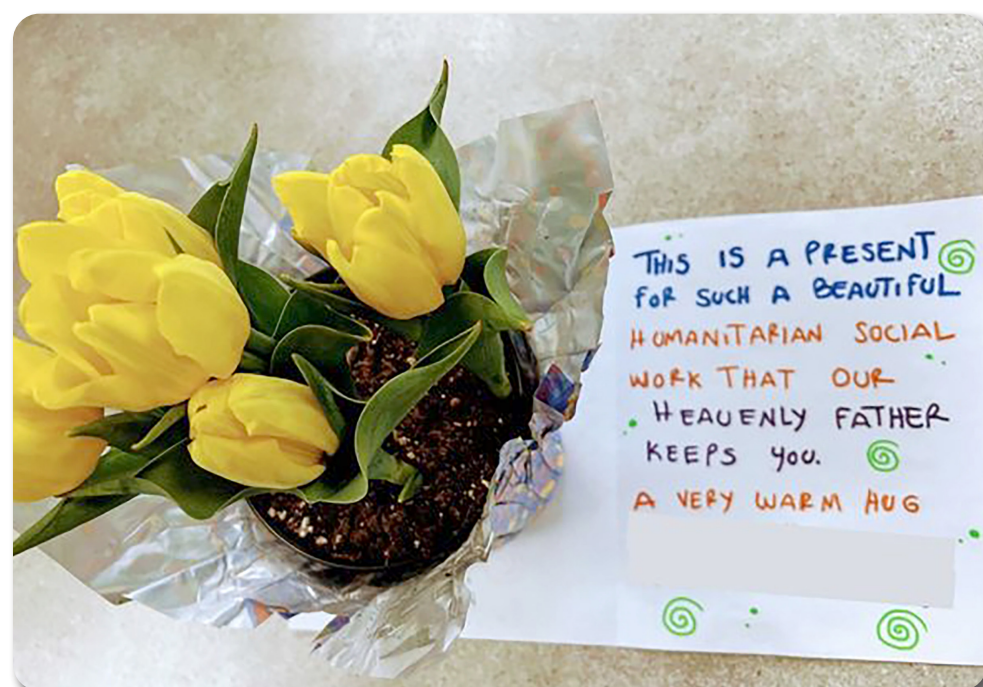 THIS IS A PRESENT
FOR SUCH A BEAUTIFUL
HUMANITARIAN SOCIAL
WORK THAT OUR
HEAVENLY FATHER
KEEPS YOU.
A VERY WARM HUG